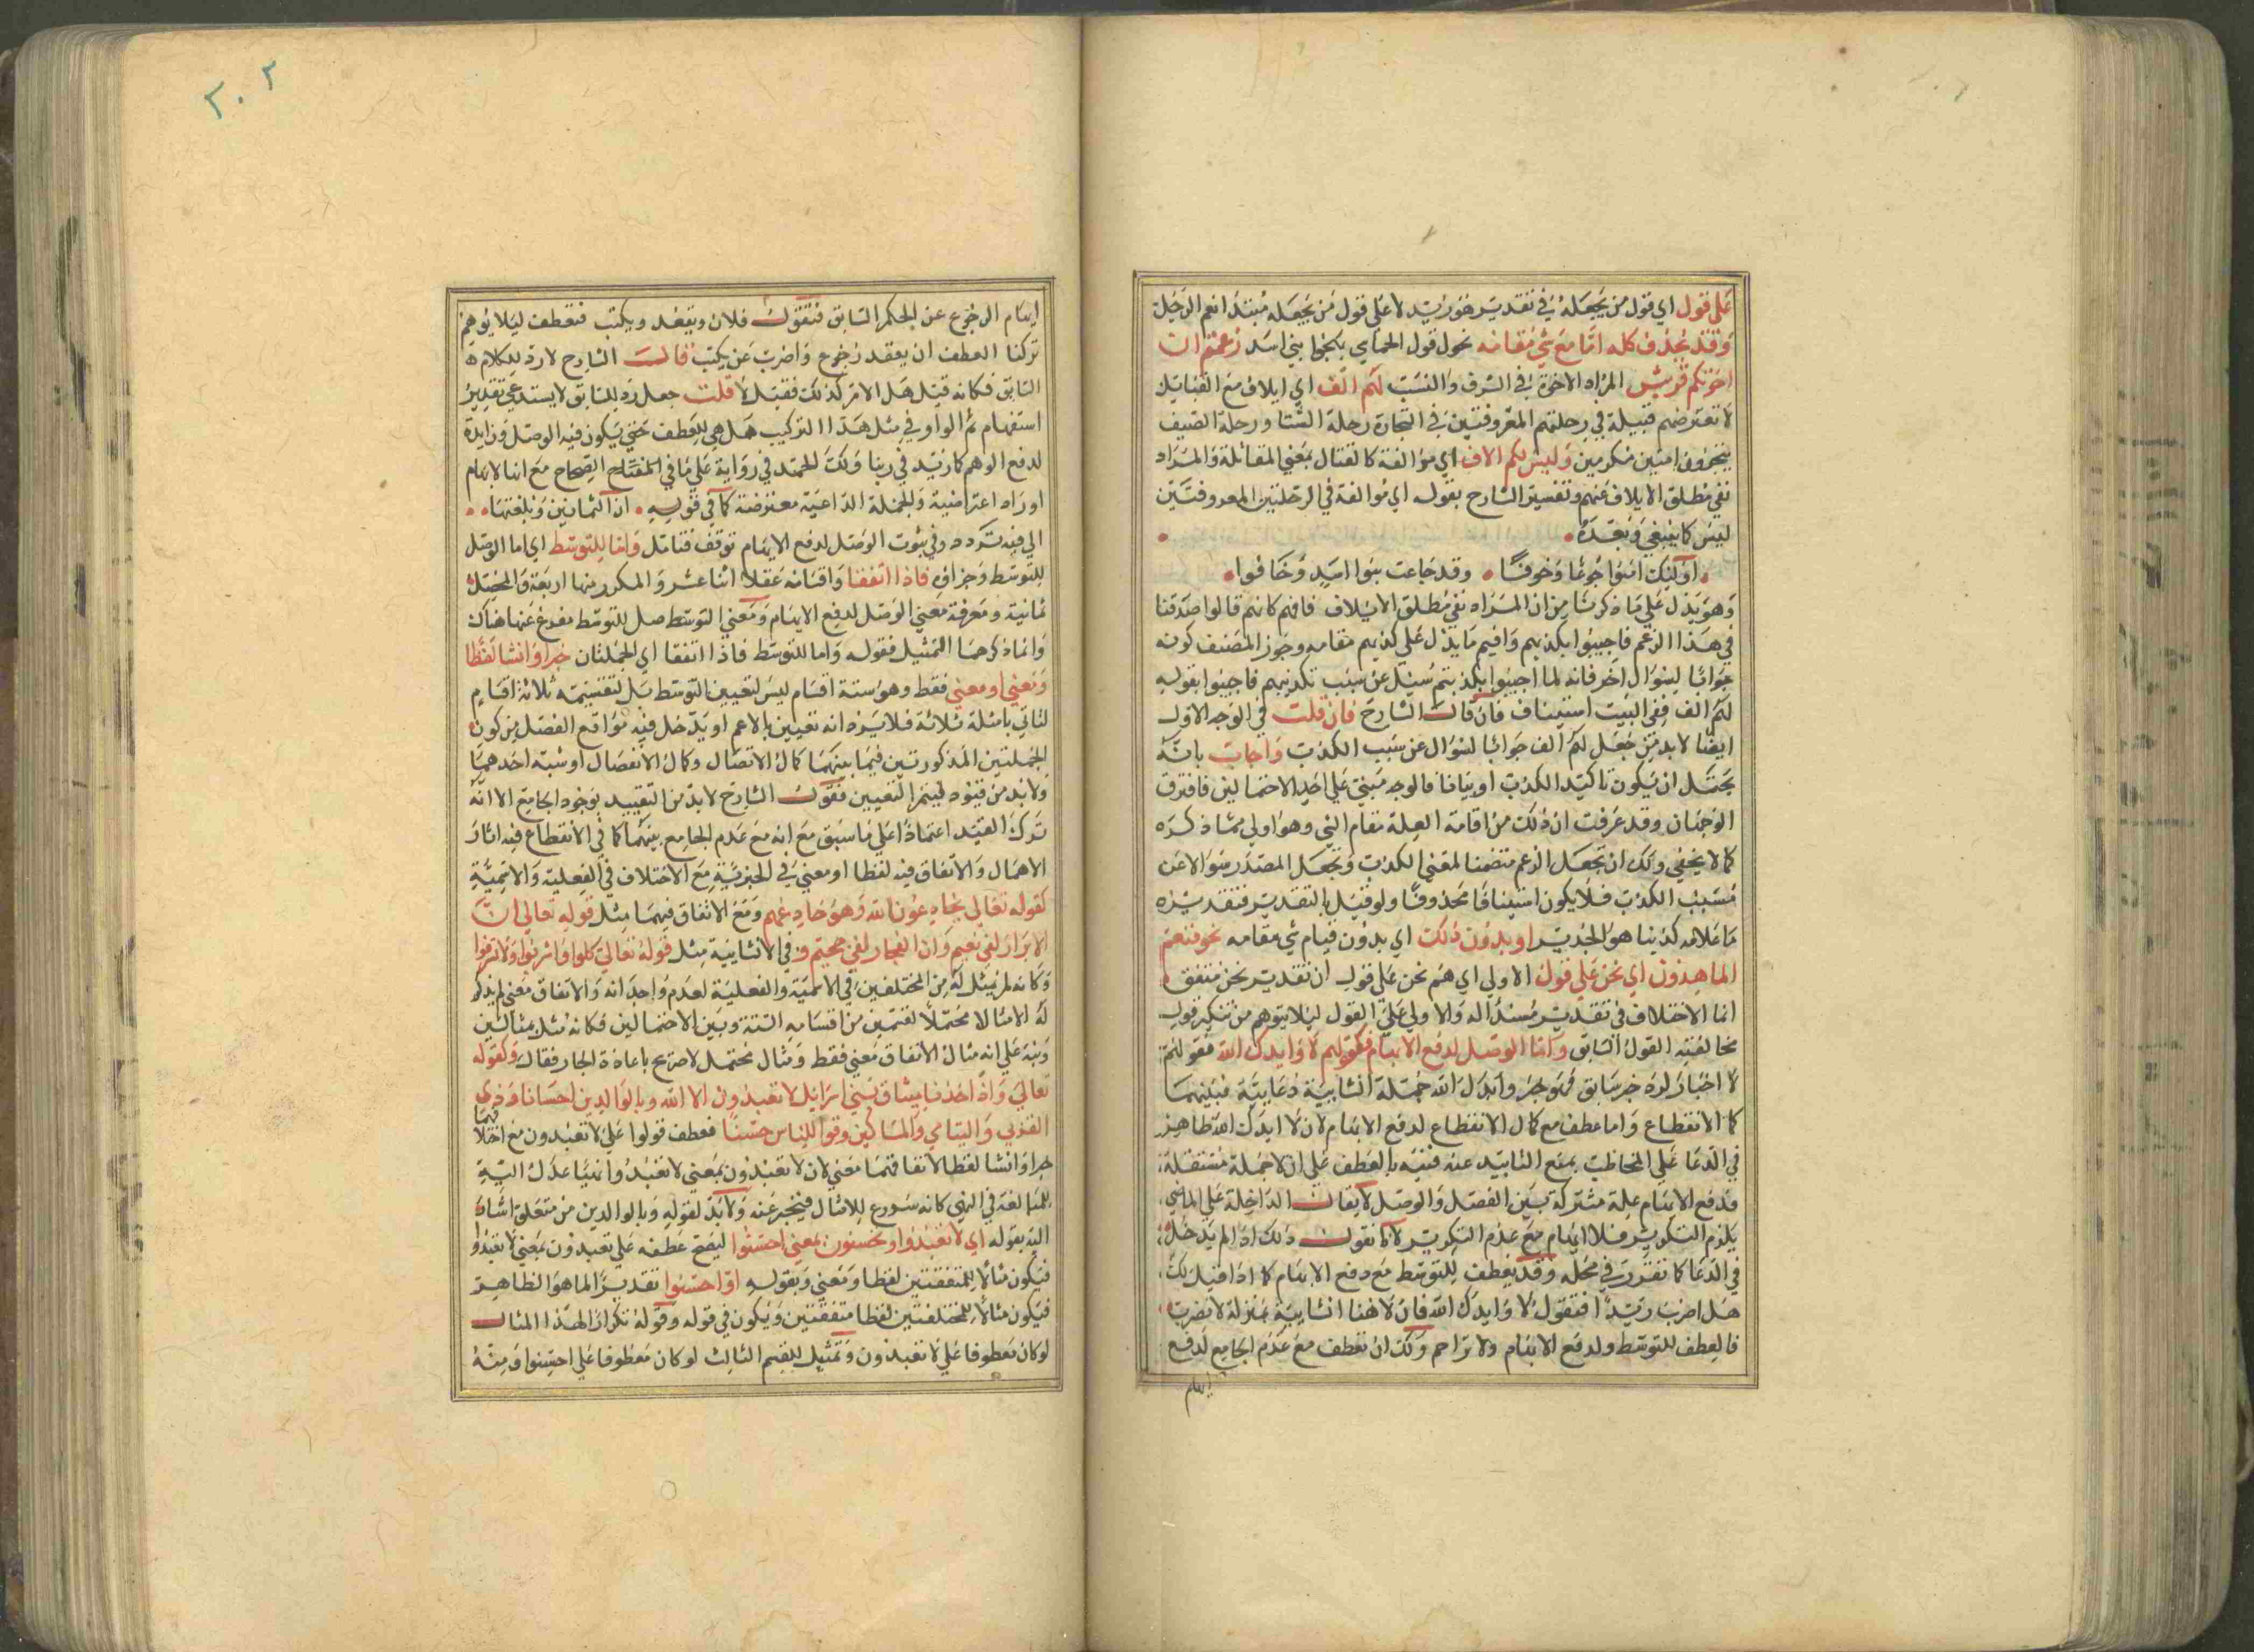 على قول اي قول من يجعله في تقدير هو زيد لا على قول من يجعله مبتدا نعم الرجل
وقد يحذف كله اما مع شي مقامه نحول قول الحماسي بكجوا بني اسد زعمتم ان
اخوتكم قريش المراد الاخوة في الشرف والنسب لهم الف اي ايلاف مع القبائل
لا تعترضهم قبيلة في رحلتهم المعروفتين في التجارة رحلة الشتا ورحلة الصيف
يتجرون امنين مكرمين وليس لكم الاف اي موالفة كالقتال بمعني المقاتلة والمراد
نفي مطلق الايلاف عنهم وتفسير الشارح بقوله اي موالفة في الرحلتين المعروفتين
ليس كا ينبغي وبعده
اوليك امنوا جوعا وخوفا وقد جاعت بنوا اسد وخافوا
وهو يدل على ما ذكرنا من ان المراد نفي مطلق الايلاف فافهم كانهم قالوا صدقنا
في هذا الزعم فاجيبوا بكذبهم واقيم ما يدل على كذبهم مقامه وجوز المصنف كونه
جوابا لسوال اخر فانه لما اجيبوا بكذبتم سيل عن سبب تكذيبهم فاجيبوا بقوله
لهم الف ففي البيت استيناف فان قال الشارح فان قلت في الوجه الاول
ايضا لا بد من جعل لهم الف جوابا لسوال عن سبب الكذب واجاب بانه
يحتمل ان يكون تاكيد الكذب او بيانا فالوجه مبني على احد الاحتمالين فافترق
الوجهان وقد عرفت ان ذلك من اقامة العلة مقام الشي وهو اولي مما ذكره
كما لا يخفي ولك ان تجعل الزعم متضمنا لمعني الكذب وتجعل المصدر سوالا عن
مسبب الكذب فلا يكون استينافا محذوفا ولو قيل بالتقدير فتقديره
ما علامه كذبنا هو الجدير او بدون ذلك اي بدون قيام شي مقامه نحو فنعم
الماهدون اي نحن على قول الاولي اي هم نحن على قول ان تقدير نحن متفق
انما الاختلاف في تقدير مسندا له والاولي على القول ليلا يتوهم من تنكير قول
مخالفته القول السابق واما الوصل لدفع الايهام فكقولهم لا وايدك الله فقولهم
لا اخبار لرد خبر سابق فهو خبر وايدك الله جملة انشايية دعايية فبينهما
كا الانقطاع واما عطف مع كمال الانقطاع لدفع الايهام لان لا ايدك الله ظاهر
في الدعا على المخاطب بمنع التاييد عنه فنبه بالعطف على ان لا جملة مستقلة
فدفع الايهام علة مشتركة بين الفصل والوصل لا يقال لا الداخلة على الماضي
يلزم التكرير فلا ايهام مع عدم التكرير لانا نقول ذلك اذا لم يدخل
في الدعا كا تقرر في محله وقد يعطف للتوسط مع دفع الايهام كا اذا قيل لك
هل اضرب زيدا فتقول لا وايدك الله فان لا هنا انشايية بمنزلة لا تضرب
فالعطف للتوسط ولدفع الايهام ولا تزاحم ولك ان تعطف مع عدم الجامع لدفع
ايهام
٢٠٢
ايهام الرجوع عن الحكم السابق فتقول فلان ويقعد ويكتب فتعطف ليلا يوهم
تركنا العطف ان يعقد رجوع واضرب عن يكتب قال الشارح لا رد لكلامه
السابق فكانه قيل هل الامر كذلك فقيل لا قلت جعل رد للسابق لا يستدعي تقدير
استفهام ثم الواو في مثل هذا التركيب هل هي للعطف حتي يكون فيه الوصل او زايدة
لدفع الوهم كا زيد في ربنا ولك الحمد في رواية على ما في المفتاح الصحاح مع انها لا يهام
او زاه اعتراضية والجملة الداعية معترضة كا في قوله ان الثمانين وبلغتها
الي فيه تردد وفي ثبوت الوصل لدفع الايهام توقف فتامل واما للتوسط اي اما الوصل
للتوسط وجزاف فاذا اتفقتا واقسامه عقلا اثنا عشر والمكرر منها اربعة والمحصل
ثمانية ومعرفة معني الوصل لدفع الايهام ومعني التوسط صل للتوسط مفرع عنها هناك
وانما ذكرهما التمثيل فقوله واما للتوسط فاذا اتفقا اي الجملتان خبرا وانشا لفظا
ومعني او معني فقط وهو ستة اقسام ليس لتعيين التوسط بل لتقسيمه ثلاثة اقسام
لناتي بامثلة ثلاثة فلا يرد انه تعيين بالاعم او يدخل فيه مواقع الفصل من كون
الجملتين المذكورتين فيما بينهما كمال الاتصال وكمال الانفصال او شبه احدهما
ولا بد من قيود ليتم التعيين فقول الشارح لا بد من التقييد بوجود الجامع الا انه
ترك القيد اعتمادا على ما سبق مع انه مع عدم الجامع بينهما كا في الانقطاع فيه اثار
الاهمال والاتفاق فيه لفظا او معني في الخبرية مع الاختلاف في الفعلية والاسمية
كقوله تعالي يخادعون الله وهو خادعهم ومع الاتفاق فيهما مثل قوله تعالي ان
الابرار لفي نعيم وان الفجار لفي جحيم وفي الانشايية مثل قوله تعالي كلوا واشربوا ولا تسرفوا
وكانه لم يمثل له من المختلفين في الاسمية والفعلية لعدم وجدانه والاتفاق معني لم يذكر
له الا مثالا محتملا لقسمين من اقسامه الستة وبين الاحتمالين فكانه مثل مثالين
ونبه على انه مثال الاتفاق معني فقط ومثال محتمل لا صريح باعادة الجار فقال وكقوله
تعالي واذ اخذنا ميثاق بني اسرايل لا تعبدون الا الله وبالوالدين احسانا وذي
القربي واليتامي والمساكين وقولوا للناس حسنا فعطف قولوا على لا تعبدون مع اختلافهما
خبرا وانشا لفظا لاتفاقهما معني لان لا تعبدون بمعني لا تعبدوا نهيا عدل اليه
للمبالغة في النهي كانه سورع للامثال فيخبر عنه ولا بد لقوله وبالوالدين من متعلق اشار
اليه بقوله اي لا تعبدوا وتحسنون بمعني احسنوا ليصح عطفه على تعبدون بمعني لا تعبدوا
فيكون مثالا للمتفقتين لفظا ومعني وبقوله او احسنوا تقديرا لما هو الظاهر
فيكون مثالا للمختلفتين لفظا متفقتين ويكون في قوله وقوله تكرار لهذا المثال
لو كان معطوفا على لا تعبدون وتمثيل للقسم الثالث لو كان معطوفا على احسنوا ومنه